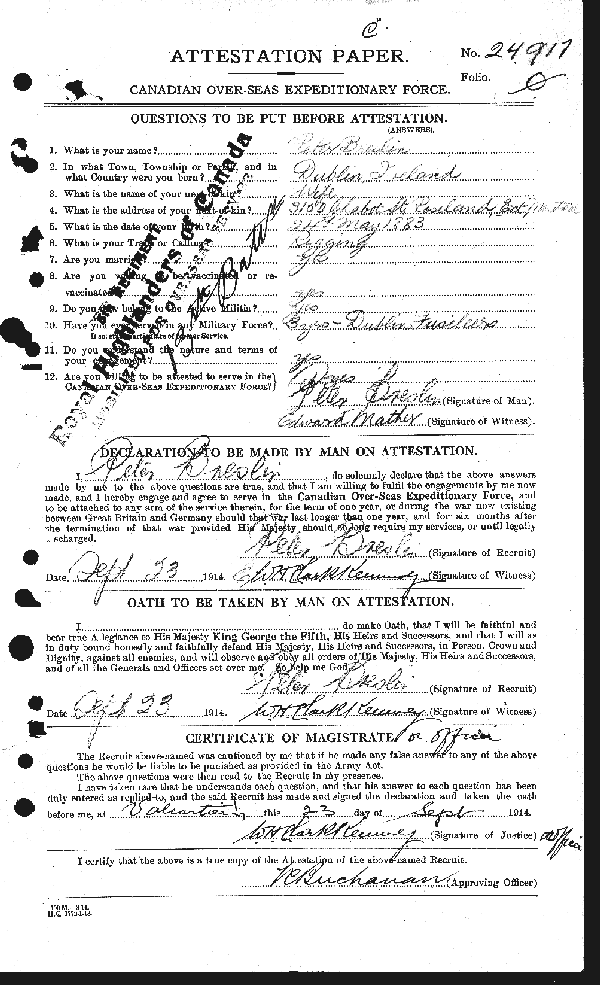 C
ATTESTATION PAPER.
No. 24917
Folio.
CANADIAN OVER-SEAS EXPEDITIONARY FORCE.
QUESTIONS TO BE PUT BEFORE ATTESTATION.
(ANSWERS).
1. What is your name? Peter Breslin
2. In what Town, Township or Parish, and in
what Country were you born? Dublin Ireland
3. What is the name of your next-of-kin? Wife
4. What is the address of your next-of-kin?
5. What is the date of your birth? 24th May 1883
6. What is your Trade or Calling? Rigging
7. Are you married? Yes
8. Are you willing to be vaccinated or re-
vaccinated? Yes
9. Do you now belong to the Active Militia? Yes
10. Have you ever served in any Military Force? Dublin Fusiliers
If so, state particulars of former Service.
11. Do you understand the nature and terms of
your engagement? Yes
12. Are you willing to be attested to serve in the
CANADIAN OVER-SEAS EXPEDITIONARY FORCE? Yes
Peter Breslin (Signature of Man).
Edward Mather (Signature of Witness).
Royal Highlanders of Canada
DECLARATION TO BE MADE BY MAN ON ATTESTATION.
I, Peter Breslin, do solemnly declare that the above answers
made by me to the above questions are true, and that I am willing to fulfil the engagements by me now
made, and I hereby engage and agree to serve in the Canadian Over-Seas Expeditionary Force, and
to be attached to any arm of the service therein, for the term of one year, or during the war now existing
between Great Britain and Germany should that war last longer than one year, and for six months after
the termination of that war provided His Majesty should so long require my services, or until legally
discharged.
Peter Breslin (Signature of Recruit)
Date, Sept 23 1914. W H Clark Kennedy (Signature of Witness)
OATH TO BE TAKEN BY MAN ON ATTESTATION.
I, do make Oath, that I will be faithful and
bear true Allegiance to His Majesty King George the Fifth, His Heirs and Successors, and that I will as
in duty bound honestly and faithfully defend His Majesty, His Heirs and Successors, in Person, Crown and
Dignity, against all enemies, and will observe and obey all orders of His Majesty, His Heirs and Successors,
and of all the Generals and Officers set over me. So help me God.
Peter Breslin (Signature of Recruit)
Date Sept 23 1914. W H Clark Kennedy (Signature of Witness)
CERTIFICATE OF MAGISTRATE or officer
The Recruit above-named was cautioned by me that if he made any false answer to any of the above
questions he would be liable to be punished as provided in the Army Act.
The above questions were then read to the Recruit in my presence.
I have taken care that he understands each question, and that his answer to each question has been
duly entered as replied to, and the said Recruit has made and signed the declaration and taken the oath
before me, at Valcartier, this 23 day of Sept 1914.
W H Clark Kennedy (Signature of Justice) or officer
I certify that the above is a true copy of the Attestation of the above-named Recruit.
Buchanan (Approving Officer)